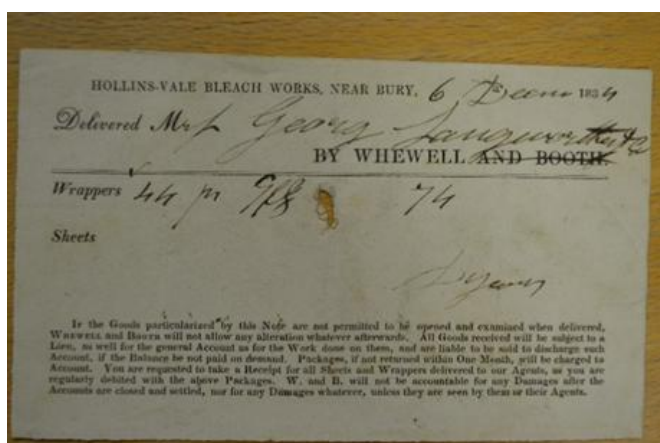 HOLLINS-VALE BLEACH WORKS, NEAR BURY, 6 Decem 1834
Delivered Mr Georg Langworthy & Co
BY WHEWELL AND BOOTH.
Wrappers 44 74
Sheets
If the Goods particularized by this Note are not permitted to be opened and examined when delivered,
WHEWELL and BOOTH will not allow any alteration whatever afterwards. All Goods received will be subject to a
Lien, as well for the general Account as for the Work done on them, and are liable to be sold to discharge such
Account, if the Balance be not paid on demand. Packages, if not returned within One Month, will be charged to
Account. You are requested to take a Receipt for all Sheets and Wrappers delivered to our Agents, as you are
regularly debited with the above Packages. W. and B. will not be accountable for any Damages after the
Accounts are closed and settled, nor for any Damages whatever, unless they are seen by them or their Agents.